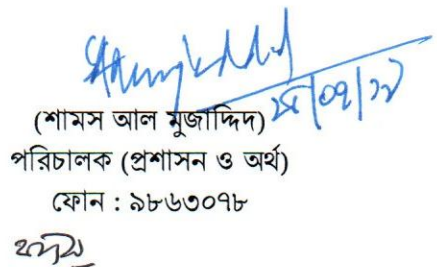 (শামস আল মুজাদ্দিদ)
পরিচালক (প্রশাসন ও অর্থ)
ফোন : ৯৮৬৩০৭৮